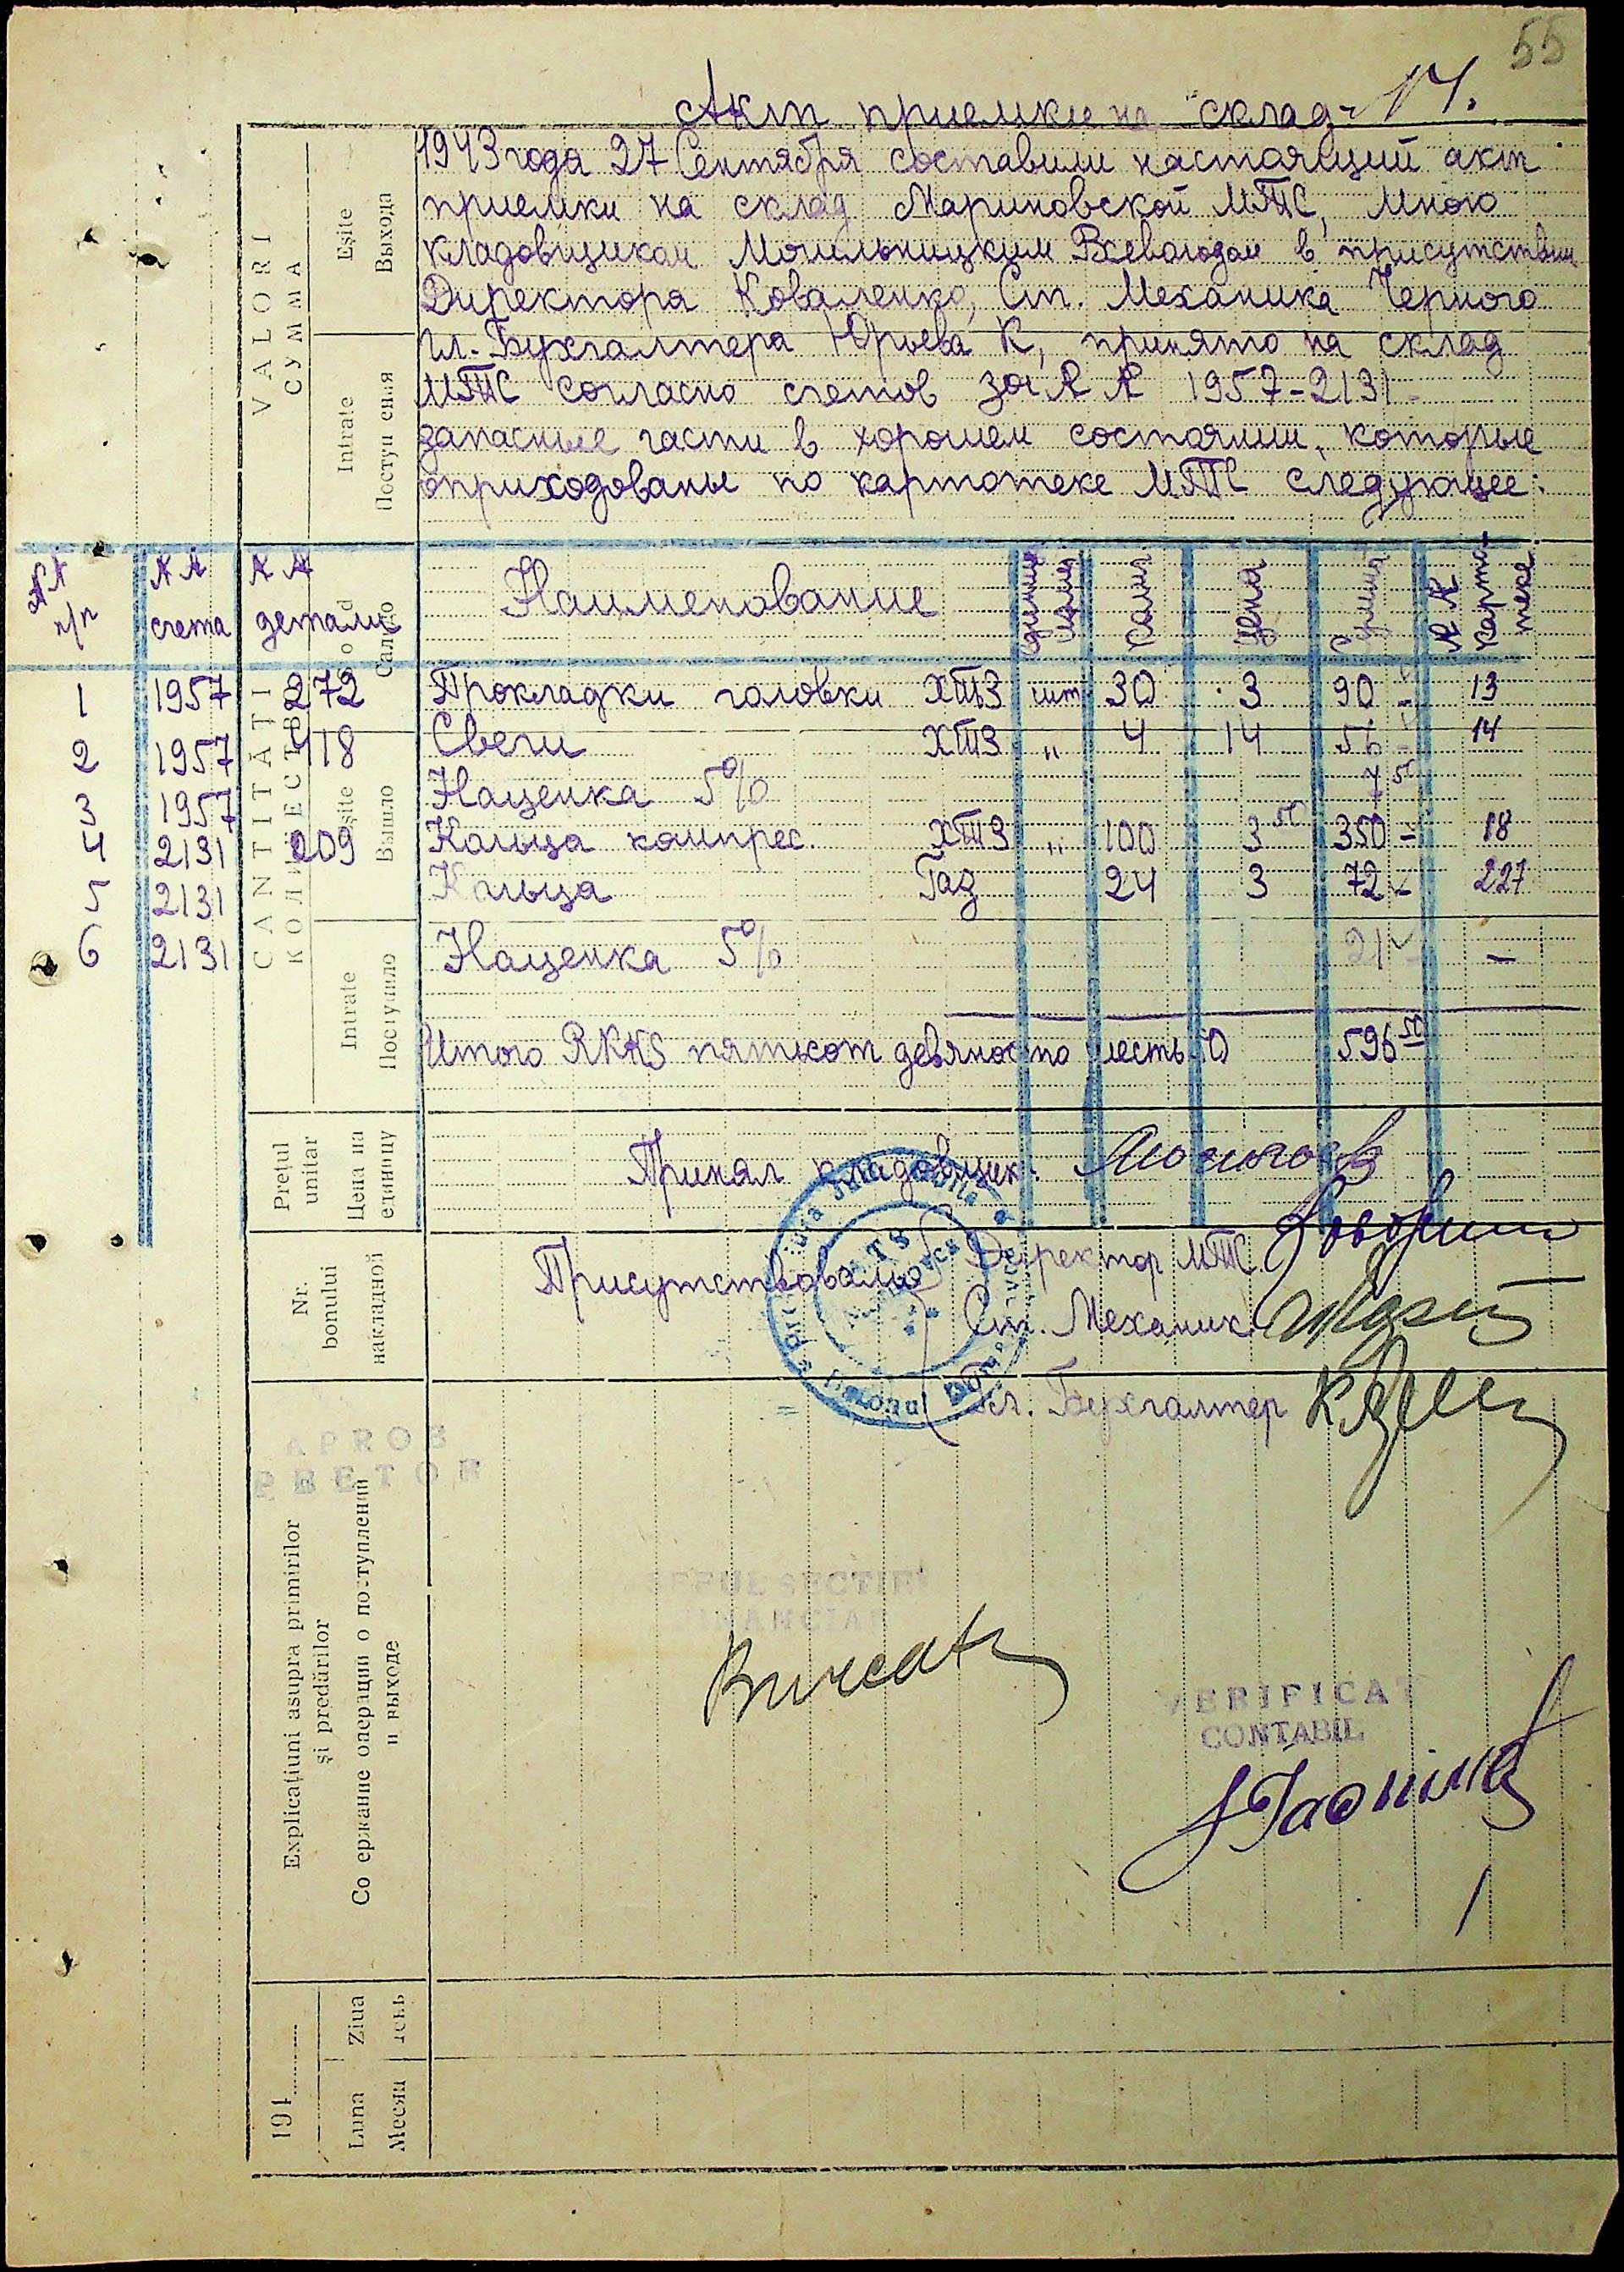 55
Акт приемки на склад - 14.
1943 года 27 Сентября составили настоящий акт
приемки на склад Мариновской МТС, мною
кладовщиком Могильницким Всеволодом в присутствии
Директора Коваленко, Ст. Механика Черного
Гл. Бухгалтера Юрьева К, принято на склад
МТС согласно счетов за № № 1957-2131
запасные части в хорошем состоянии, которые
оприходованы по картотеке МТС следующее:
№№ п/п №№ счета №№ детали Наименование единица измер колич Цена Сумма №№ карто-теке
1 1957 272 Прокладки головки ХТЗ шт 30 3 90 - 13
2 1957 418 Свечи ХТЗ " 4 14 56 - 14
3 1957 Наценка 5% 7 50
4 2131 209 Кольца компрес. ХТЗ " 100 3 50 350 - 18
5 2131 Кольца Газ 24 3 72 - 227
6 2131 Наценка 5% 21 - —
Итого RKKS пятьсот девяносто шесть 50 596 50
Принял кладовщик:
Присутствовали Директор МТС.
Ст. Механик
Гл. Бухгалтер
APROB
PRETOR
ȘEFUL SECTIEI
FINANCIAR
VERIFICAT
CONTABIL
VALORI
СУММА
Eșite
Выхода
Intrate
Поступ ения
CANTITĂȚI
КОЛИЧЕСТВО
Sold
Сальдо
Eșite
Вышло
Intrate
Поступило
Prețul
unitar
Цена на
единицу
Nr.
bonului
накладной
Explicațiuni asupra primirilor
și predărilor
Со ержание операции о поступлении
и выходе
194
Luna Ziua
Месяц день